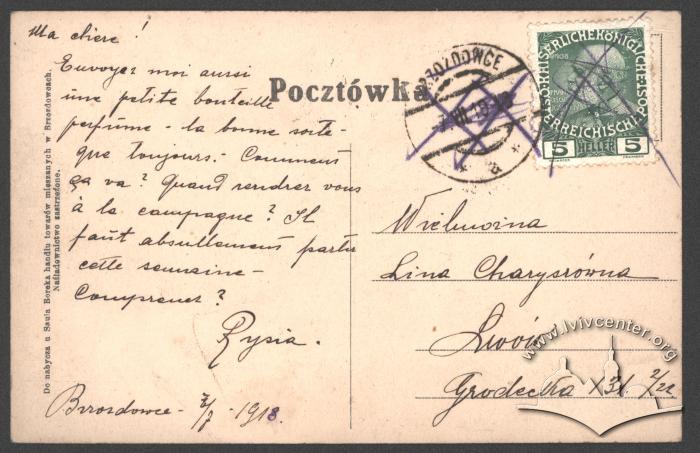 Ma chere!
Envoyez moi aussi
une petite bouteille
perfume - la bonne sorte-
que toujours. - Comment
ça va? Quand rendrez vous
à la campagne? Il
faut absullement partir
cette semaine -
Comprenez?
Rysia.
Brzozdowce - 1918.
Do nabycia u Saula Boreka handlu towarów mieszanych w Brzozdowcach.
Naśladownictwo zastrzeżone.
Pocztówka
BRZOZDOWCE
KAISERLICHE KÖNIGLICHE
ÖSTERREICHISCHE
5 HELLER 5
Wielmożna
Lina Charysrówna
Lwów
Grodecka 131. 2/22
www.lvivcenter.org